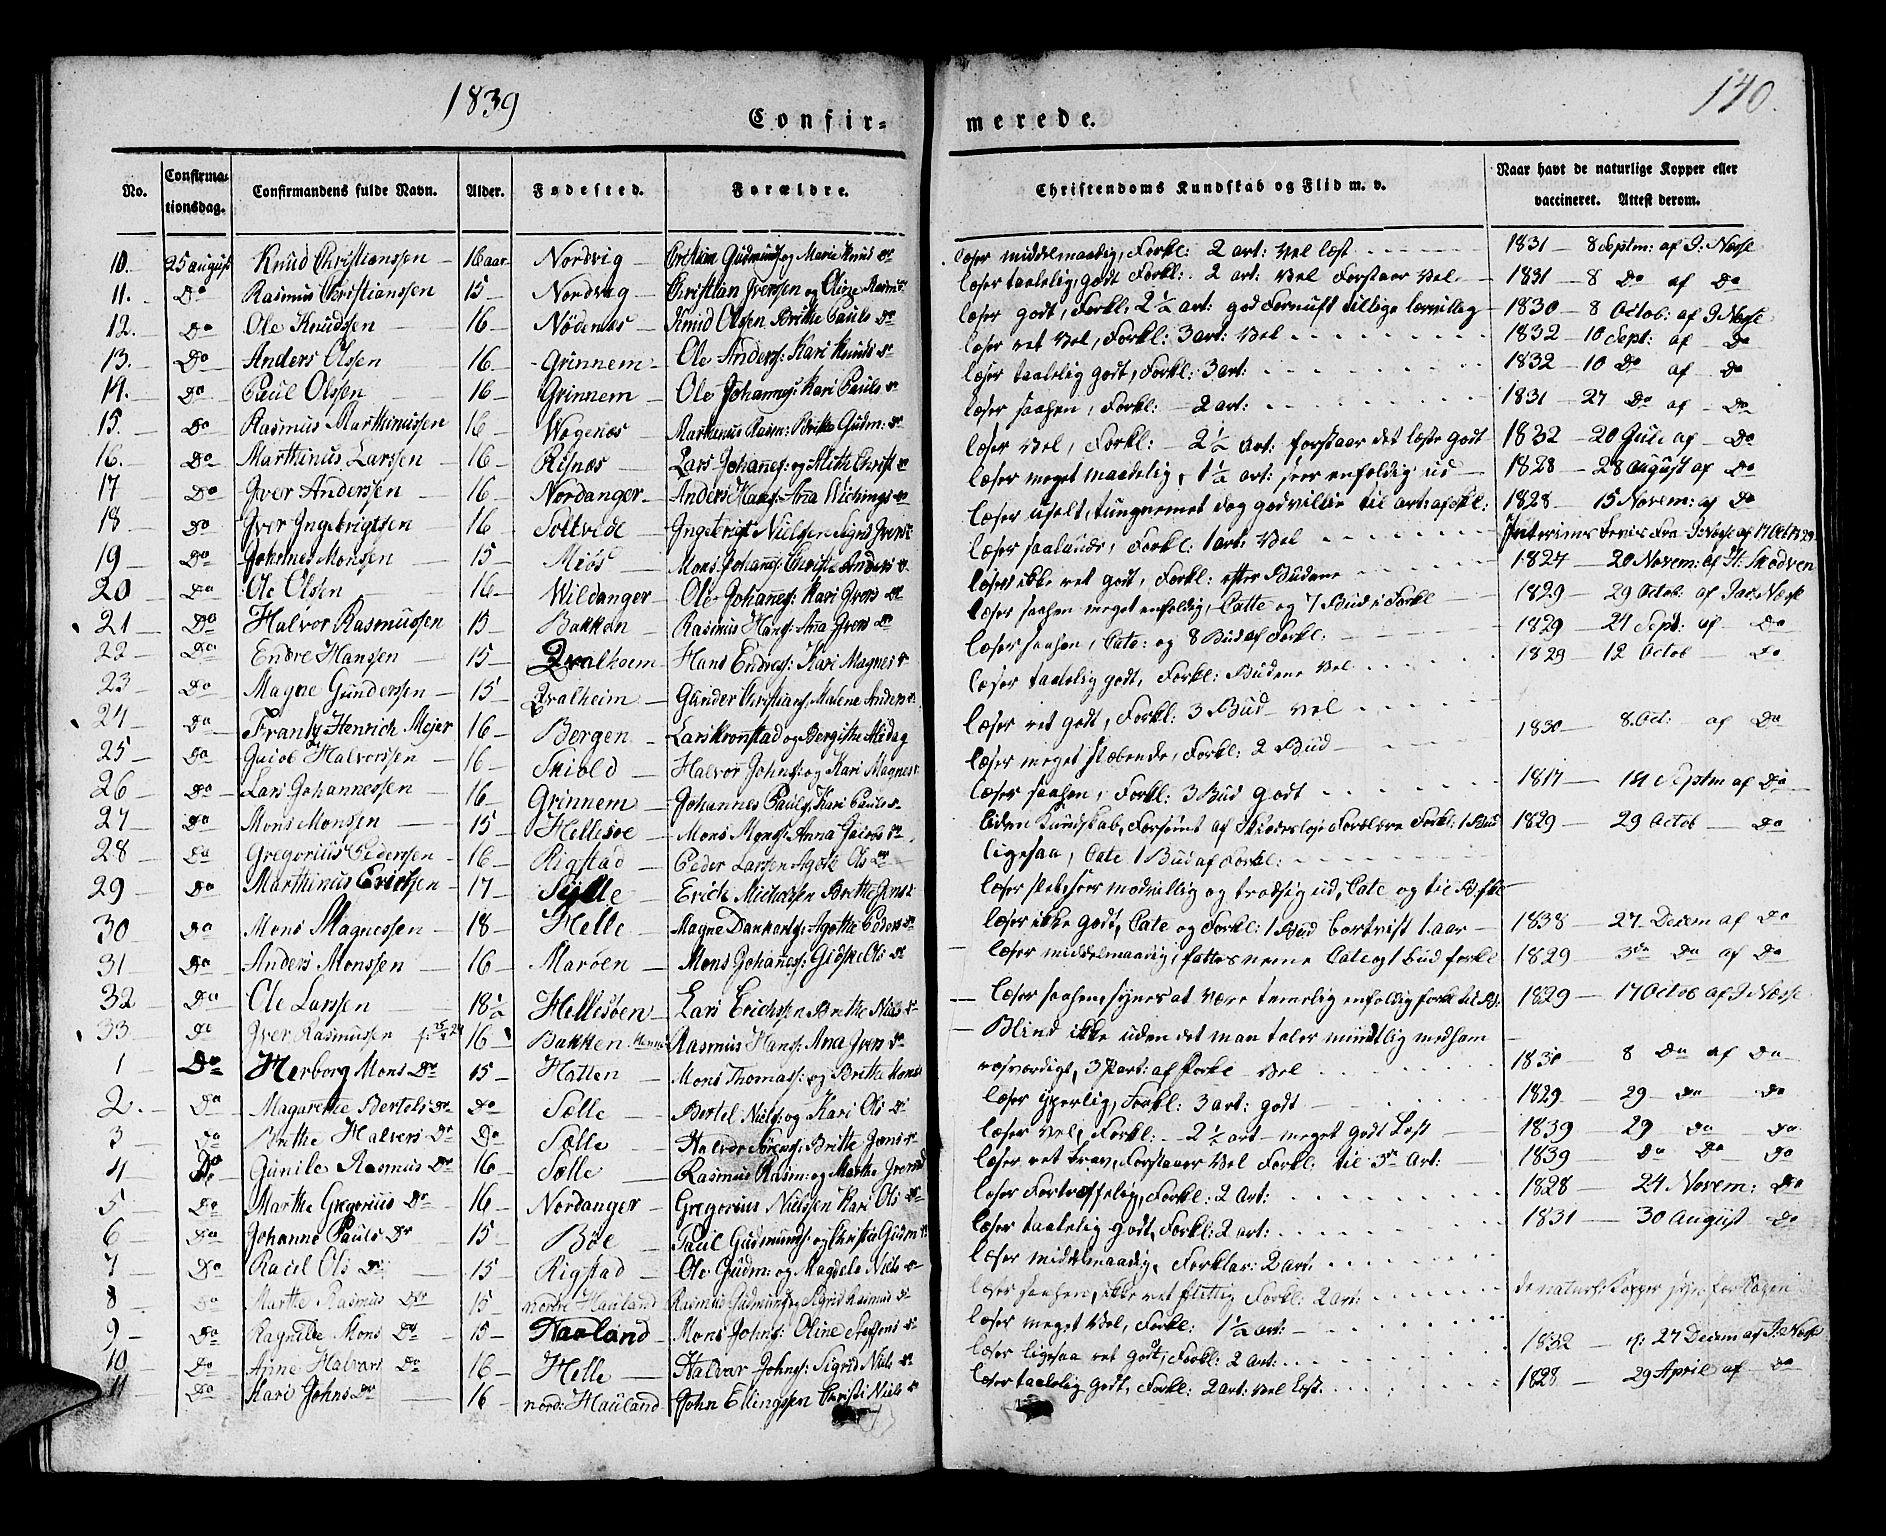 1839
140.
Confir- merede.
No. Confirma- tionsdag. Confirmandens fulde Navn. Alder. Fødested. Forældre. Christendoms Kundskab og Flid m. v. Naar havt de naturlige Kopper eller vaccineret. Attest derom.
10. 25 august Knud Christianssen 16 aar Nordvig Cristian Gudmunds og Marie Knuds Dr læser middelmaadig, Forkl: 2 art: vel læst 1831 8 Septm: af J: Næse
11. Do Rasmus Christianssen 15 Nordvig Christian Iversen og Oline Rasm: læser taalelig godt Forkl: 2 art: vel Forstaar vel 1831 8 Do af Do
12. Do Ole Knudssen 16 Nødenæs Knud Olsen Brithe Pauls Dr læser godt, Forkl: 2½ art: god Fornuft tillige 1830 8 Octob: af J Næse
13. Do Anders Olsen 16 Grinnem Ole Anders: Kari Knuds Dr læser ret vel, Forkl: 3 art: vel 1832 10 Sept: af Do
14. Do Paul Olssen 16 Grinnem Ole Johannes: Kari Pauls Dr læser taalelig godt, Forkl: 3 art: 1832 10 Do af Do
15. Do Rasmus Marthinussen 16 Wogenæs Marthinus Rasm: Brithe Gudm: Dr læser saahen, Forkl: 2 art: 1831 27 Do af Do
16. Do Marthinus Larssen 16 Risnæs Lars Johanes: og Christ Dr læser vel, Forkl: 2½ art: forstaar det læste godt 1832 20 af Do
17 Do Iver Anderssen 16 Nordanger Anders Hans: Ana Dr læser meget maadelig, 1½ art: seer enfoldig ud 1828 28 august af Do
18 Do Iver Ingebrigtsen 16 Soltvedt Ingebrigt Nielsen Sigrid Ivers læser uselt, tungnemet dog godvillie til art: af Fkl: 1828 15 Novem: af Do
19 Do Johannes Monsen 15 Miøs Mons Johans: Christi Anders Dr læser saalunde, Forkl: 1 art: vel Interims Bevis Fra J: Næse af 17 Oct 1829
20 Do Ole Olsen 16 Wildanger Ole Johanes: Kari Ivers Dr læser ikke ret godt, Forkl: efter Budene 1824 20 Novem: af H: Skodven
21 Do Halvor Rasmussen 15 Bakken Rasmus Hans: Ana Ivers Dr læser saahen meget enfoldig, Catte og 7 Bud i Forkl 1829 29 Octob: af Jac: Næse
22 Do Endre Hanssen 15 Qvalheim Hans Endres: Kari Magnes Dr læser saahen, Cate: og 8 Bud af Forkl: 1829 24 Sept: af Do
23 Do Magne Gunderssen 15 Qvalheim Gunder Christians: Malene Anders læser taalelig godt, Forkl: Budene vel 1829 12 Octob Do
24 Do Frantz Henrich Mejer 16 Bergen Lars Kronstad og Bergithe Midag læser ret godt, Forkl: 3 Bud vel 1830 8. Oct: af Do
25 Do Halvorssen 16 Skiold Halvor Johns: og Kari Magnes læser meget stæbende, Forkl: 2 Bud
26 Do Lars Johannessen 16 Grinnem Johannes Pauls: Kari Pauls Dr læser saahen, Forkl: 3 Bud godt 1817 14 Septm af Do
27 Do Mons Monsen 15 Hellesøe Mons Mons: Anna Jacobs Dr liden Kundskab, Forsømt af Forældre Forkl: 1 Bud 1829 29 Octob Do
28 Do Gregorius Pederssen 16 Rigstad Peder Larsen Agate Ols Dr ligesaa, Cate 1 Bud af Forkl:
29 Do Marthinus Erichssen 17 Sylte Erich Michelssen Brithe Jens modvillig og trodsig ud, Cate og til
30 Do Mons Magnessen 18 Helle Magne Dankerts: Agathe Peders Dr læser ikke godt, Cate og Forkl: 1 Bud bortvist 1. aar 1838 27 Decem af Do
31 Do Anders Monssen 16 Marøen Mons Johanes: Ols Dr læser middelmaadig, fattes nemme Cate og 1 bud forkl 1829 3de Do af Do
32 Do Ole Larssen 18½ Hellesøen Lars Erichssen Brithe Nils læser saahen, synes at være temelig enfoldig 1829 17 Octob af J Næse
33 Do Iver Rasmussen 16 Bakken Rasmus Hans: Ana Ivers Dr Blind ikke uden det man taler mundtlig med ham
1 Do Herborg Mons Dr 15 Hatten Mons Thomas: og Brithe Mons rosværdigt, 3 Part: af Forkl vel 1830 8 Do af Do
2. Do Magarethe Bertels Dr Do Sælle Bertel Niels: og Kari Ols Dr læser yperlig, Forkl: 3 art: godt 1829 29 Do Do
3 Do Brithe Halvors Dr Do Sælle Halvor Sørens: Brithe Jens læser vel, Forkl: 2½ art meget godt Læst 1839 29 Do Do
4 Do Gunile Rasmus Dr 16 Sælle Rasmus Rasm: og Marthe Ivers læser ret brav, Forstaaer vel Forkl: til 3de Art: 1839 Do Do Do
5 Do Marthe Gregorius Dr 16 Nordanger Gregorius Nielssen Kari Ols Dr læser Fortræffelig, Forkl: 2 Art: 1828 24 Novem: Do
6 Do Johanne Pauls Dr 15 Bøe Paul Gudmunds: og Christi Gudm læser taalelig godt, Forkl: 2 art: 1831 30 August Do
7 Do Ragil Ols Dr 15 Rigstad Ole Gudm: og Magdele Niels læser middelmaadig, Forklar: 2 art.
8 Do Marthe Rasmus Dr 15 nordre Hauland Rasmus Gudmunds og Sigrid Rasmus Dr læser saahen, ikke ret flittig Forkl: 2 art: de naturl: Kopper
9 Do Ragnilde Mons Dr 15 Haaland Mons Johns: Oline Steffens Dr læser meget vel, Forkl: 1½ art: 1832 27 Decem af J: Næse
10 Do Ane Halvors Dr 16 Helle Halvor Johns: Sigrid Niels Dr læser ligesaa ret godt, Forkl: 2 art: 1828 29 April af Do
11 Do Kari Johns Dr 16 nord: Hauland John Ellingssen Christi Niels Dr læser taalelig godt, Forkl: 2 art: vel læst.